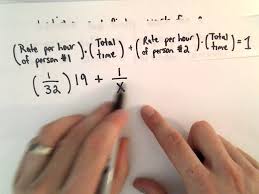 (Rate per hour of person #1) · (Total time) + (Rate per hour of person #2) · (Total time) = 1
(1/32) 19 + 1/x